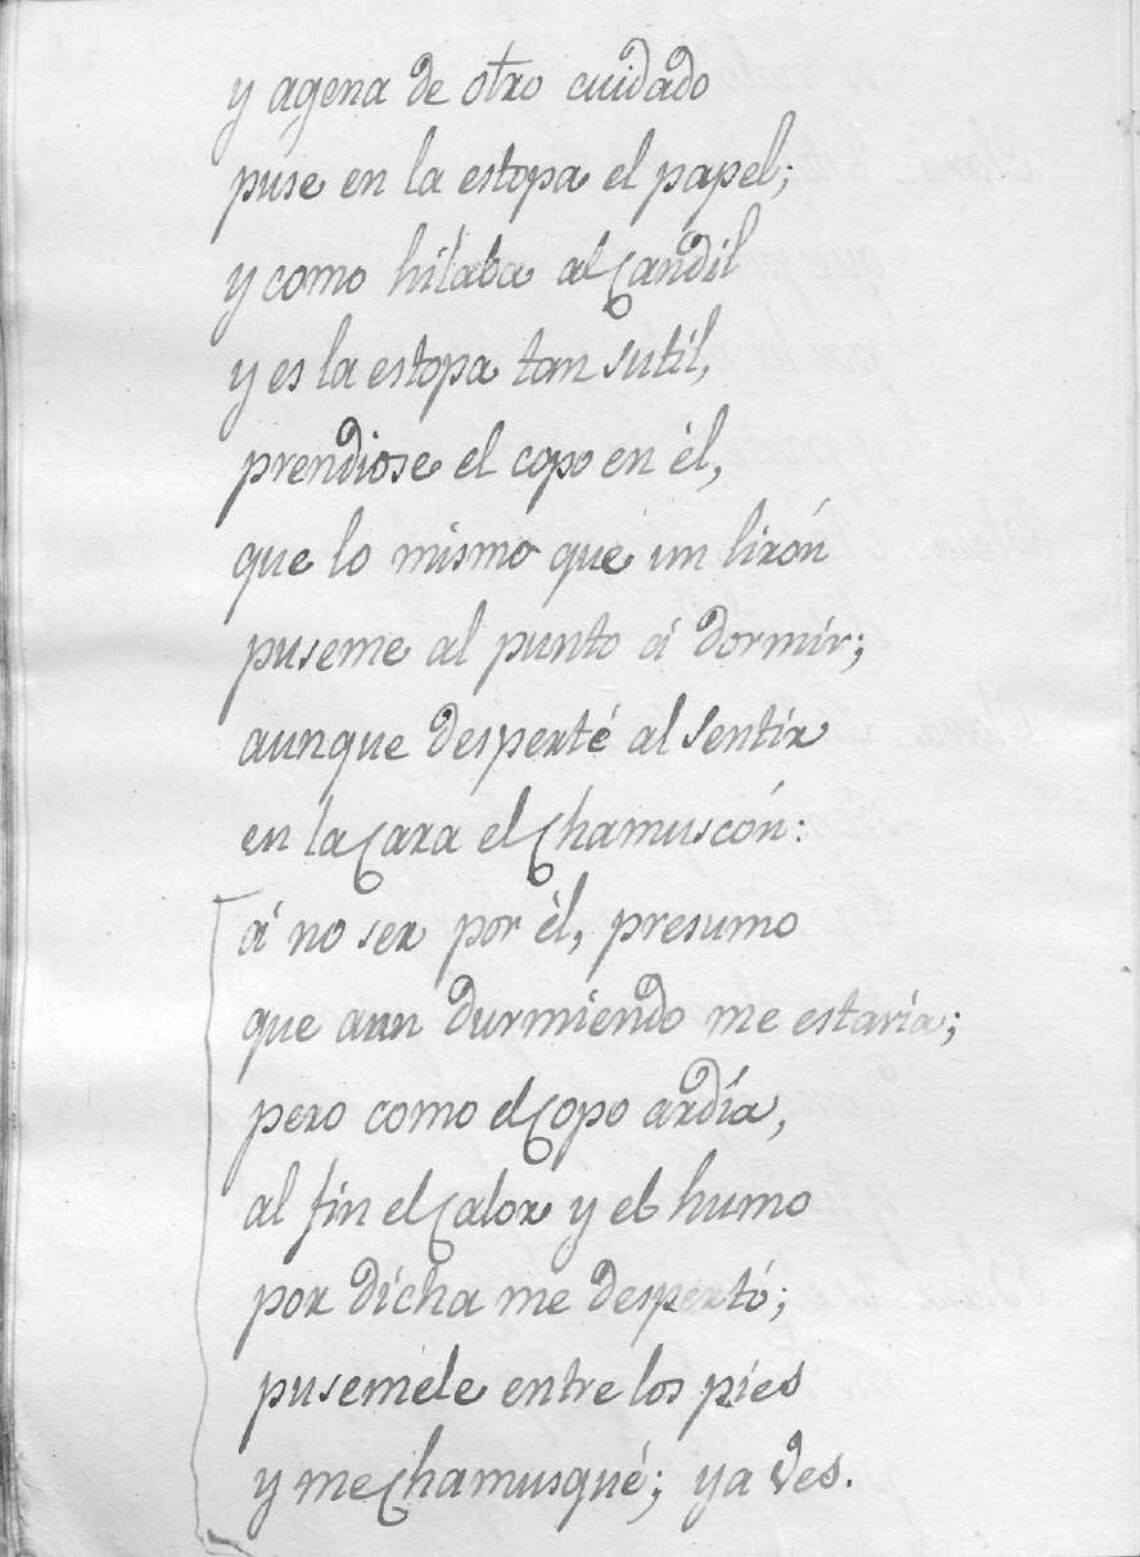 y agena de otro cuidado
puse en la estopa el papel;
y como hilaba al Candil
y es la estopa tan sutil,
prendiose el copo en èl,
que lo mismo que un lirón
puseme al punto á dormir;
aunque desperté al sentir
en la Cara el Chamuscón:
á no ser por èl, presumo
que aun durmiendo me estaría;
pero como el Copo ardía,
al fin el Calor y el humo
por dicha me despertó;
pusemele entre los pies
y me Chamusqué; ya ves.